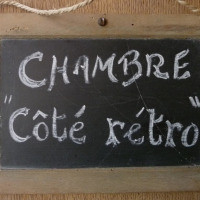 CHAMBRE
"Côté rétro"